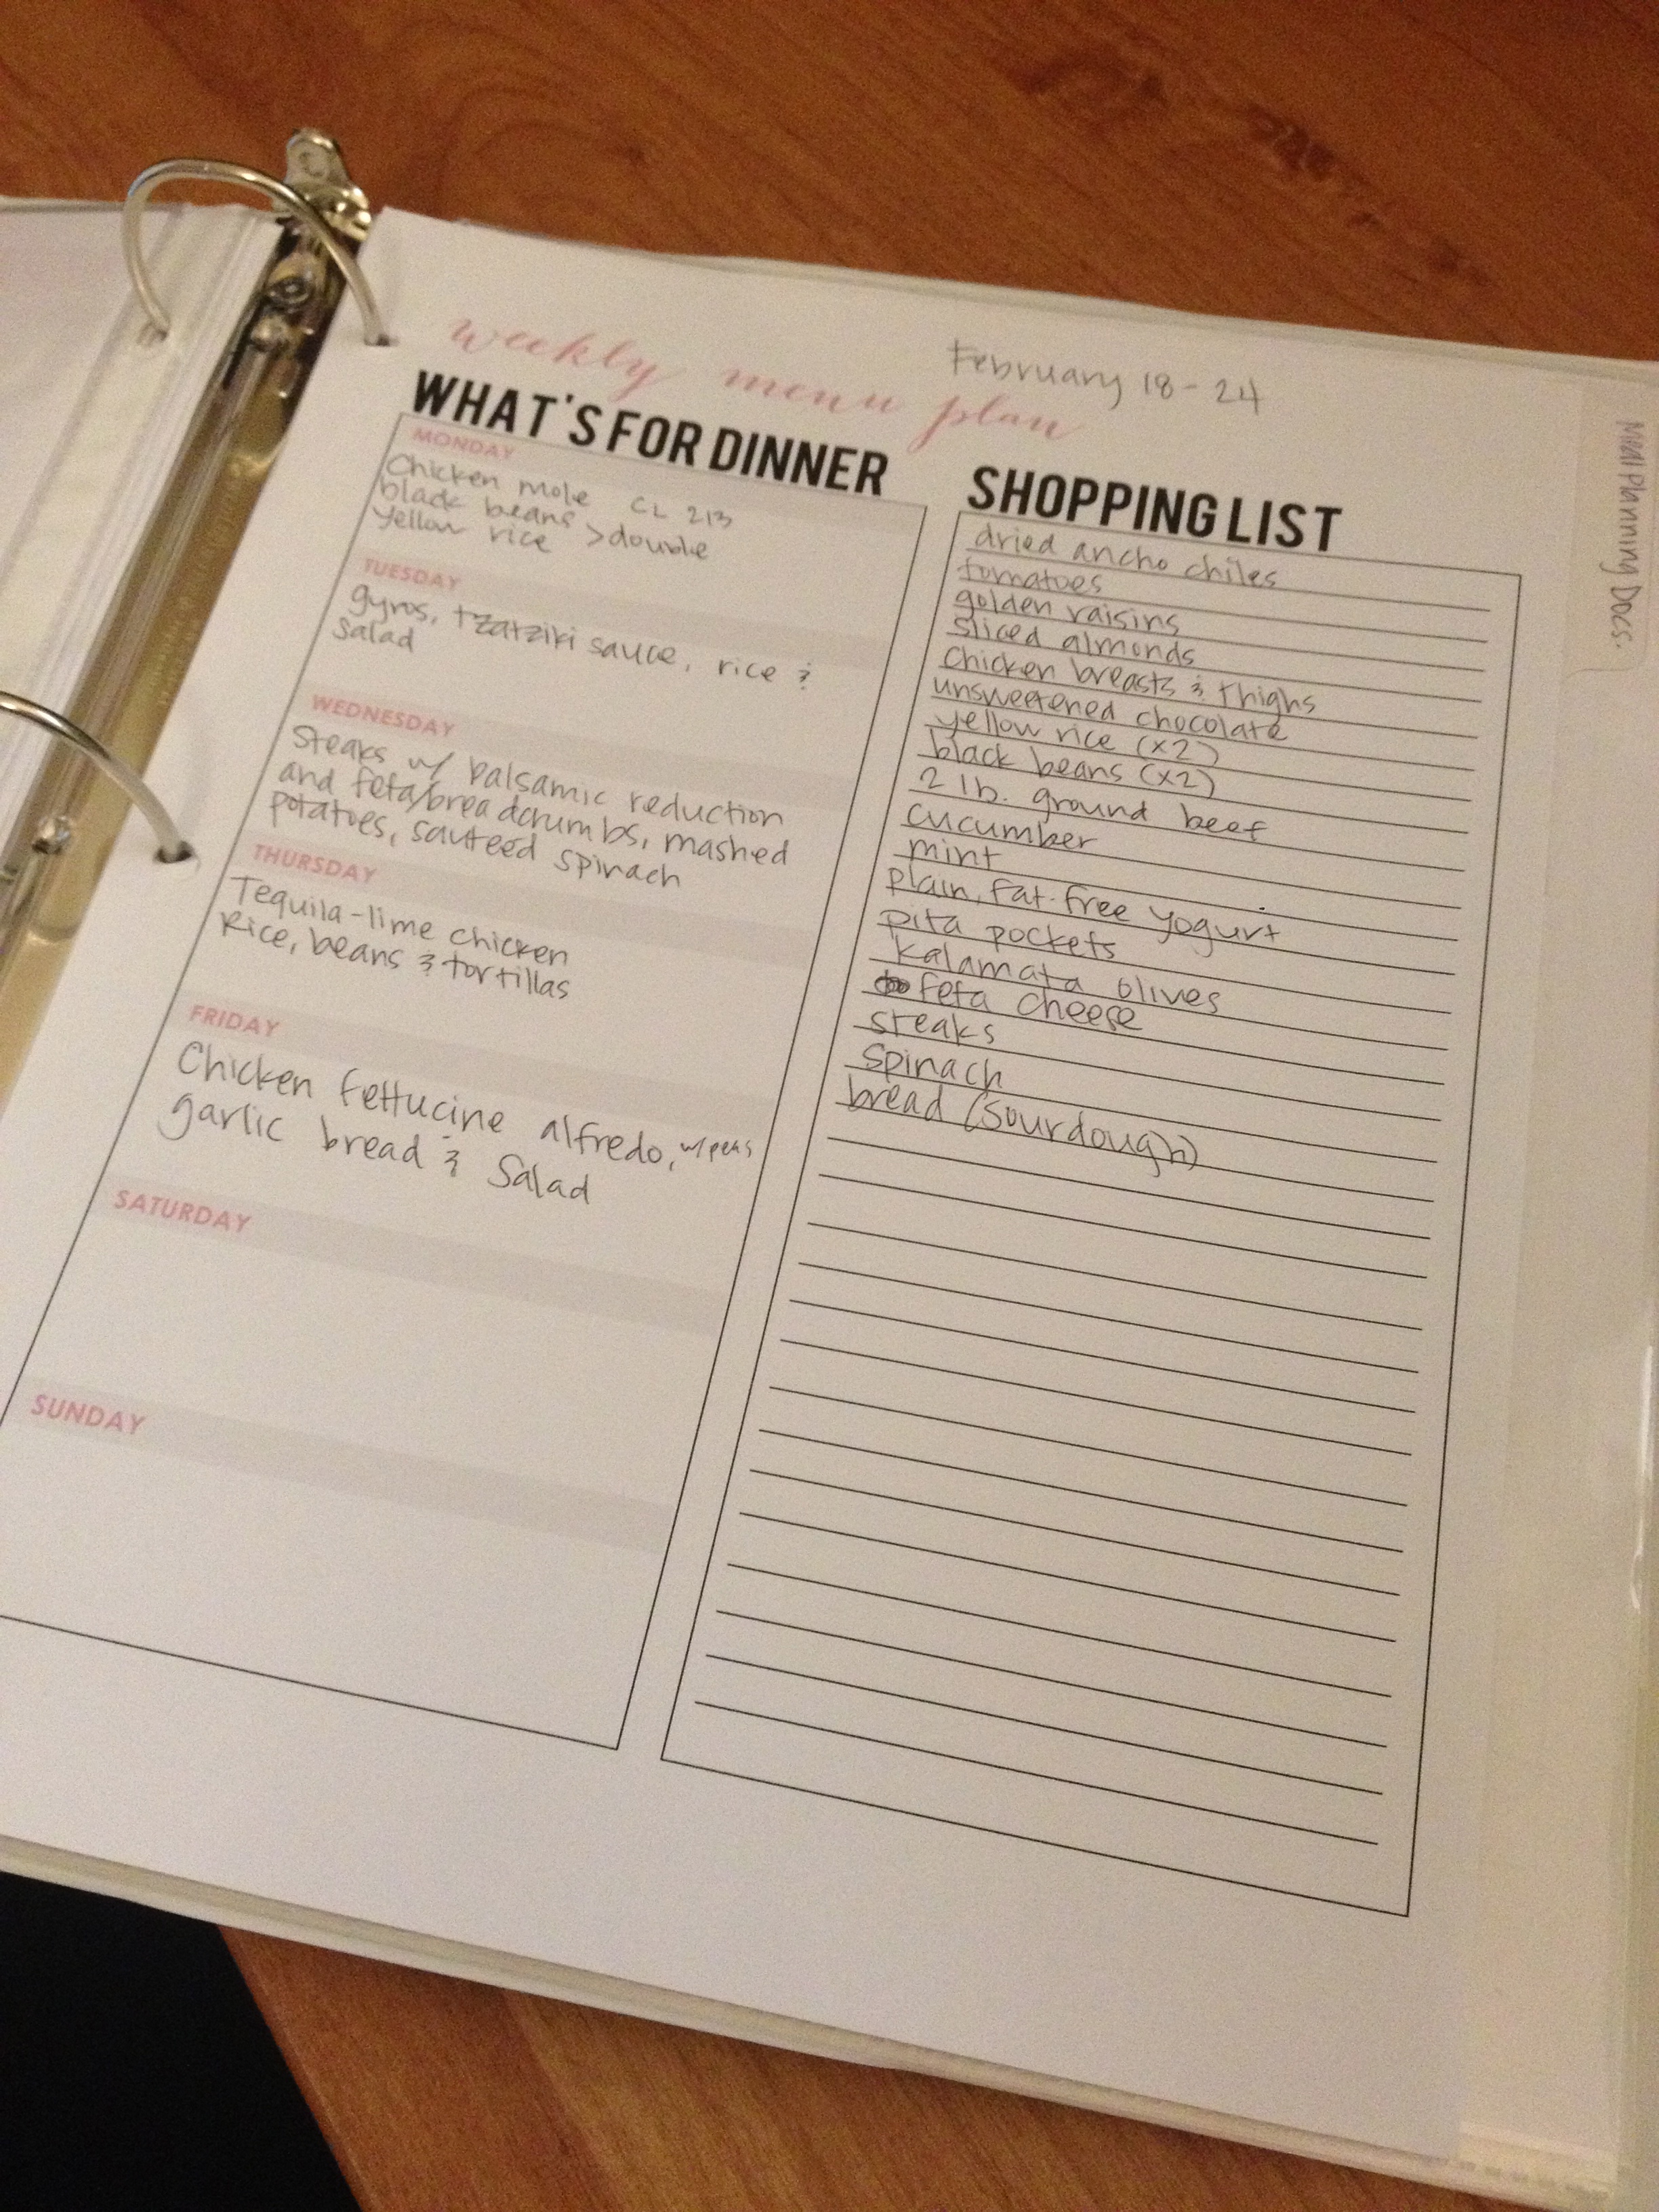 weekly menu plan
February 18-24
WHAT'S FOR DINNER
MONDAY
Chicken mole CL 213
black beans >double
yellow rice
TUESDAY
gyros, tzatziki sauce, rice &
salad
WEDNESDAY
Steaks w/ balsamic reduction
and feta/breadcrumbs, mashed
potatoes, sauteed spinach
THURSDAY
Tequila-lime chicken
Rice, beans & tortillas
FRIDAY
Chicken fettucine alfredo, w/peas
garlic bread & salad
SATURDAY
SUNDAY
SHOPPING LIST
dried ancho chiles
tomatoes
golden raisins
sliced almonds
Chicken breasts & thighs
unsweetened chocolate
yellow rice (x2)
black beans (x2)
2 lb. ground beef
cucumber
mint
plain, fat-free yogurt
pita pockets
Kalamata olives
feta cheese
steaks
Spinach
bread (sourdough)
Meal Planning Docs.